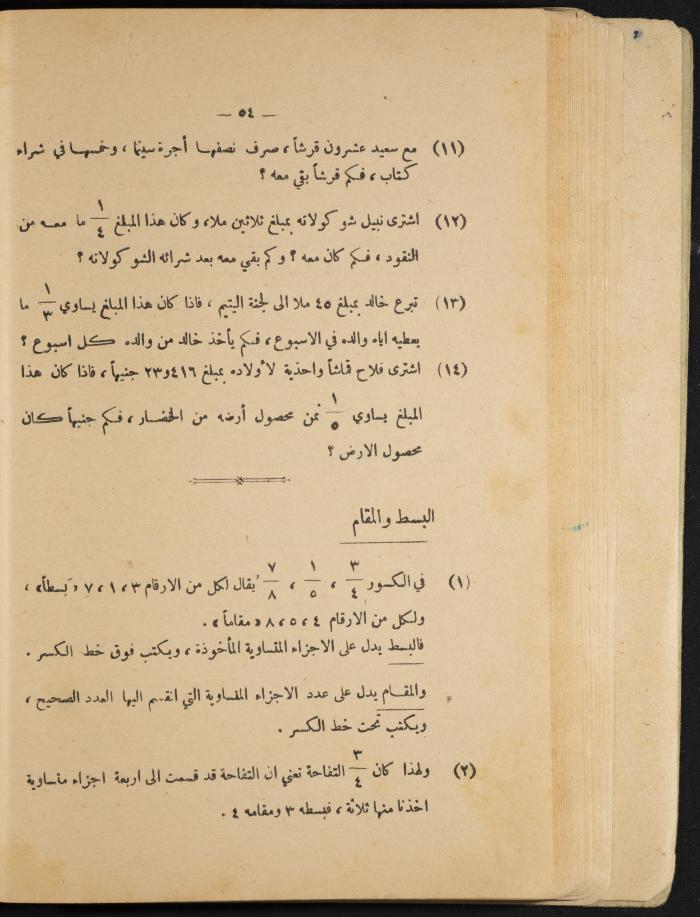 — ٥٤ —
(١١) مع سعيد عشرون قرشاً ، صرف نصفها أجرة سينما ، وخمسها في شراء
كتاب ، فكم قرشاً بقي معه ؟
(١٢) اشترى نبيل شوكولاته بمبلغ ثلاثين ملا، وكان هذا المبلغ ١/٤ ما معه من
النقود ، فكم كان معه ؟ وكم بقي معه بعد شرائه الشوكولاته ؟
(١٣) تبرع خالد بمبلغ ٤٥ ملا الى لجنة اليتيم ، فاذا كان هذا المبلغ يساوي ١/٣ ما
يعطيه اياه والده في الاسبوع ، فكم يأخذ خالد من والده كل اسبوع ؟
(١٤) اشترى فلاح قماشاً واحذية لأولاده بمبلغ ٤١٦و٢٣ جنيهاً ، فاذا كان هذا
المبلغ يساوي ١/٥ ثمن محصول أرضه من الخضار ، فكم جنيهاً كان
محصول الارض ؟
البسط والمقام
(١) في الكسور ٣/٤ ، ١/٥ ، ٧/٨ يُقال لكل من الارقام ٣ ، ١ ، ٧ «بسطاً» ،
ولكل من الارقام ٤ ، ٥ ، ٨ «مقاماً» .
فالبسط يدل على الاجزاء المتساوية المأخوذة ، ويكتب فوق خط الكسر .
والمقام يدل على عدد الاجزاء المتساوية التي انقسم اليها العدد الصحيح ،
ويكتب تحت خط الكسر .
(٢) ولهذا كان ٣/٤ التفاحة تعني ان التفاحة قد قسمت الى اربعة اجزاء متساوية
اخذنا منها ثلاثة ، فبسطه ٣ ومقامه ٤ .